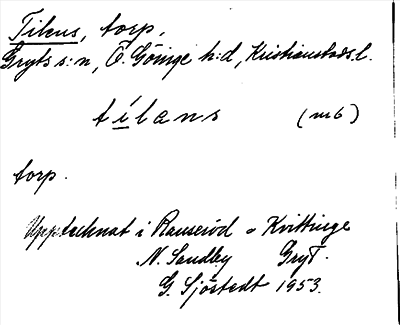 Tilens, torp,
Gryts s:n, Ö. Göinge h:d, Kristianstads l.
tílans (m6)
torp.
Upptecknat i Rauseröd o Kvittinge
N. Sandby Gryt.
G. Sjöstedt 1953.